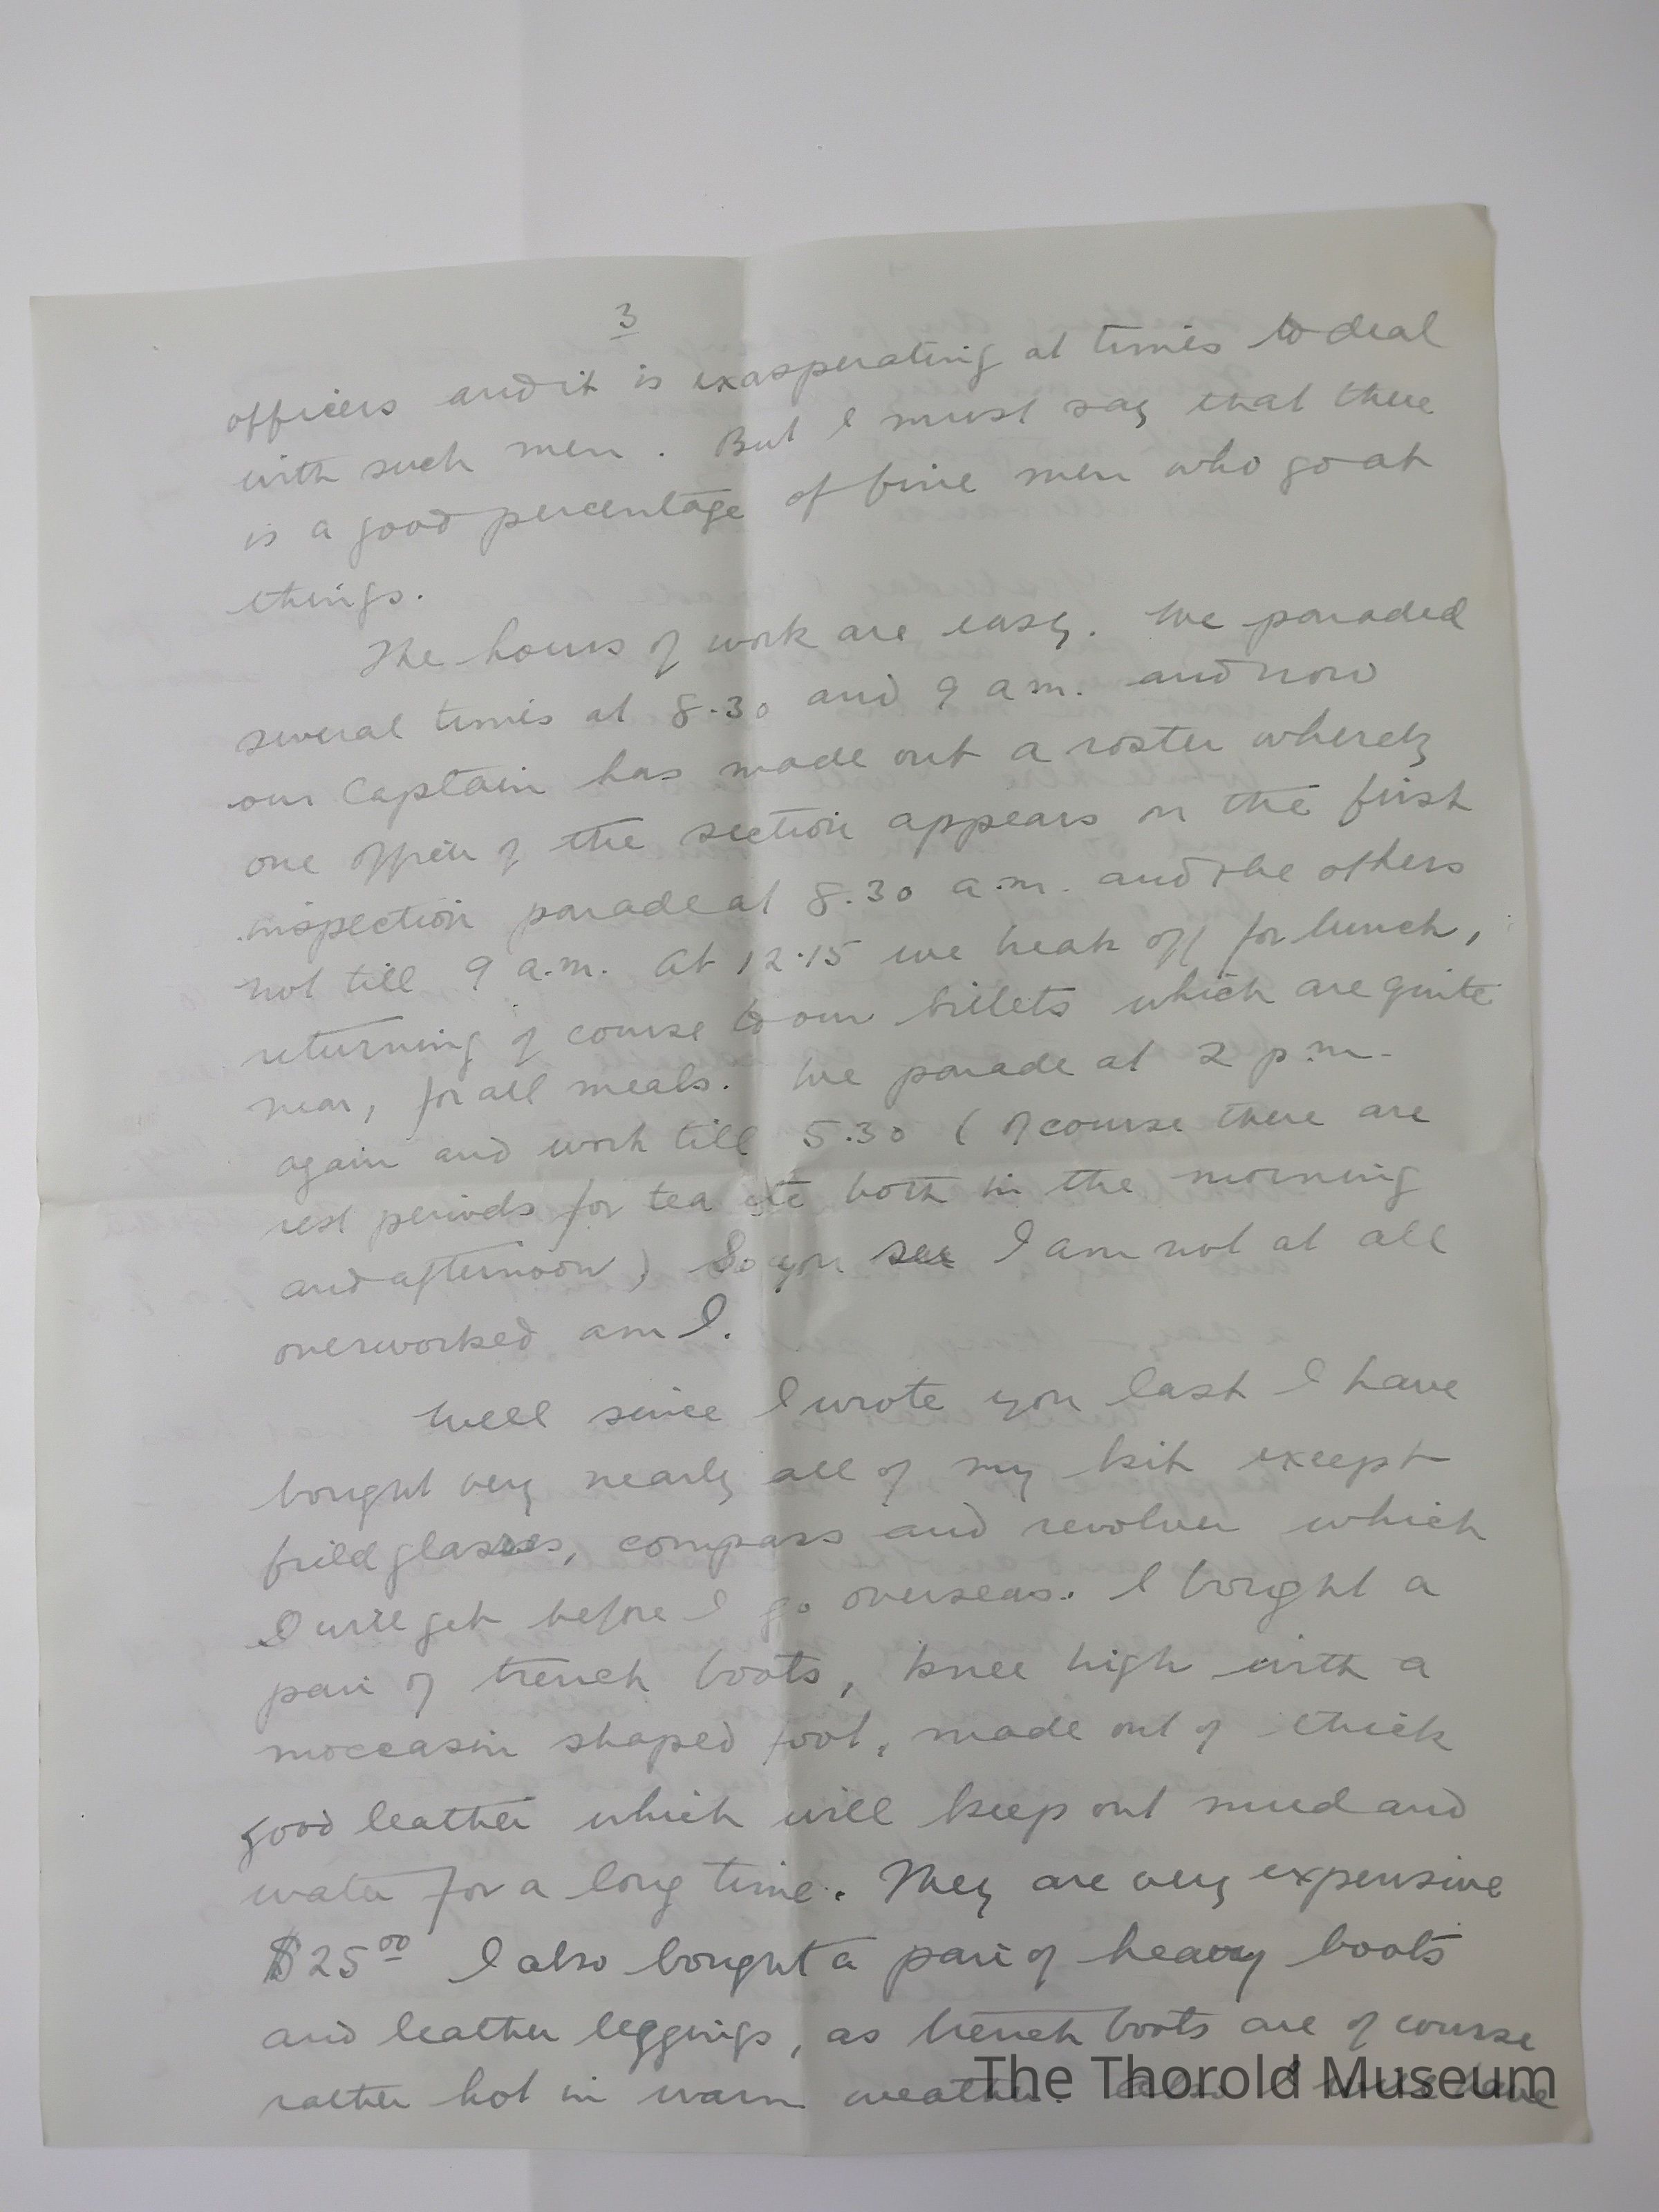 3
officers and it is exasperating at times to deal
with such men. But I must say that there
is a good percentage of fine men who go at
things.
The hours of work are easy. We paraded
several times at 8.30 and 9 a m. and now
our Captain has made out a roster whereby
one officer of the section appears on the first
inspection parade at 8.30 a.m. and the others
not till 9 a.m. At 12.15 we break off for lunch,
returning of course to our billets which are quite
near, for all meals. We parade at 2 p.m.
again and work till 5.30 (of course there are
rest periods for tea etc both in the morning
and afternoon) So you see I am not at all
overworked am I.
Well since I wrote you last I have
bought very nearly all of my kit except
field glasses, compass and revolver which
I will get before I go overseas. I bought a
pair of trench boots, knee high with a
moccasin shaped foot, made out of thick
good leather which will keep out mud and
water for a long time. They are very expensive
$25.00 I also bought a pair of heavy boots
and leather leggings, as trench boots are of course
rather hot in warm weather. Also I have
The Thorold Museum